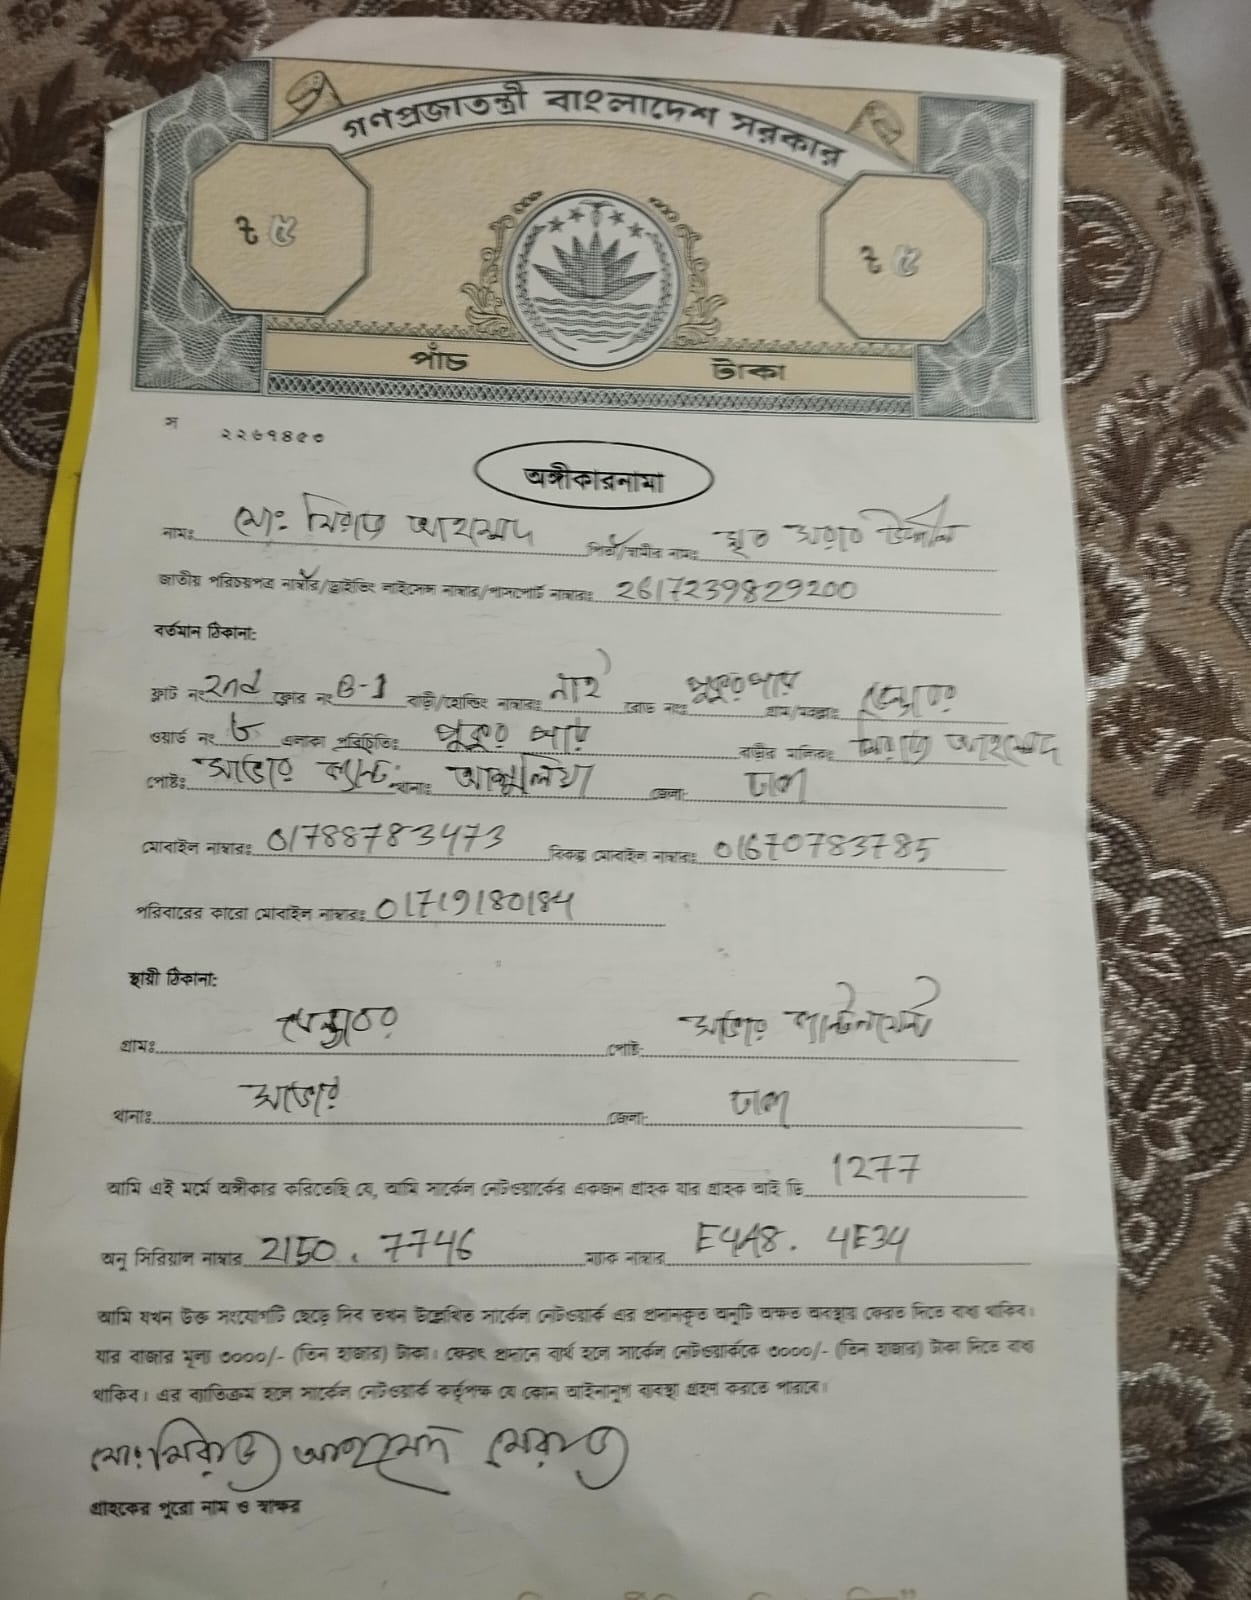 গণপ্রজাতন্ত্রী বাংলাদেশ সরকার
৳ ৫ ৳ ৫
পাঁচ টাকা
স ২২৬৭৪৫৩
অঙ্গীকারনামা
নামঃ মোঃ মিরাজ আহম্মেদ পিতা/স্বামীর নামঃ মৃত
জাতীয় পরিচয়পত্র নাম্বার/ড্রাইভিং লাইসেন্স নাম্বার/পাসপোর্ট নাম্বারঃ 2617239829200
বর্তমান ঠিকানা:
ফ্লাট নং 2nd ফ্লোর নং B-1 বাড়ী/হোল্ডিং নাম্বারঃ নাই রোড নংঃ পুকুর পার গ্রাম/মহল্লাঃ
ওয়ার্ড নং ৬ এলাকা পরিচিতিঃ পুকুর পার বাড়ীর মালিকঃ মিরাজ আহম্মেদ
পোষ্টঃ সাভার ক্যান্ট: থানাঃ আশুলিয়া জেলা: ঢাকা
মোবাইল নাম্বারঃ 01788783473 বিকল্প মোবাইল নাম্বারঃ 01670783785
পরিবারের কারো মোবাইল নাম্বারঃ 01719180184
স্থায়ী ঠিকানা:
গ্রামঃ পোষ্ট: সাভার ক্যান্টনমেন্ট
থানাঃ সাভার জেলা: ঢাকা
আমি এই মর্মে অঙ্গীকার করিতেছি যে, আমি সার্কেল নেটওয়ার্কের একজন গ্রাহক যার গ্রাহক আই ডি 1277
অনু সিরিয়াল নাম্বার 2150. 7746 ম্যাক নাম্বার E4A8. 4E34
আমি যখন উক্ত সংযোগটি ছেড়ে দিব তখন উল্লেখিত সার্কেল নেটওয়ার্ক এর প্রদানকৃত অনুটি অক্ষত অবস্থায় ফেরত দিতে বাধ্য থাকিব।
যার বাজার মূল্য ৩০০০/- (তিন হাজার) টাকা। ফেরৎ প্রদানে ব্যর্থ হলে সার্কেল নেটওয়ার্ককে ৩০০০/- (তিন হাজার) টাকা দিতে বাধ্য
থাকিব। এর ব্যতিক্রম হলে সার্কেল নেটওয়ার্ক কর্তৃপক্ষ যে কোন আইনানুগ ব্যবস্থা গ্রহণ করতে পারবে।
মোঃ মিরাজ আহমেদ মেরাজ
গ্রাহকের পুরো নাম ও স্বাক্ষর